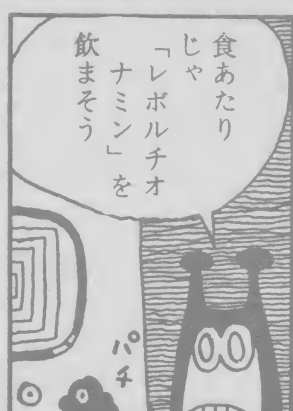 食あたり
じゃ
「レボルチオ
ナミン」を
飲まそう
パチ